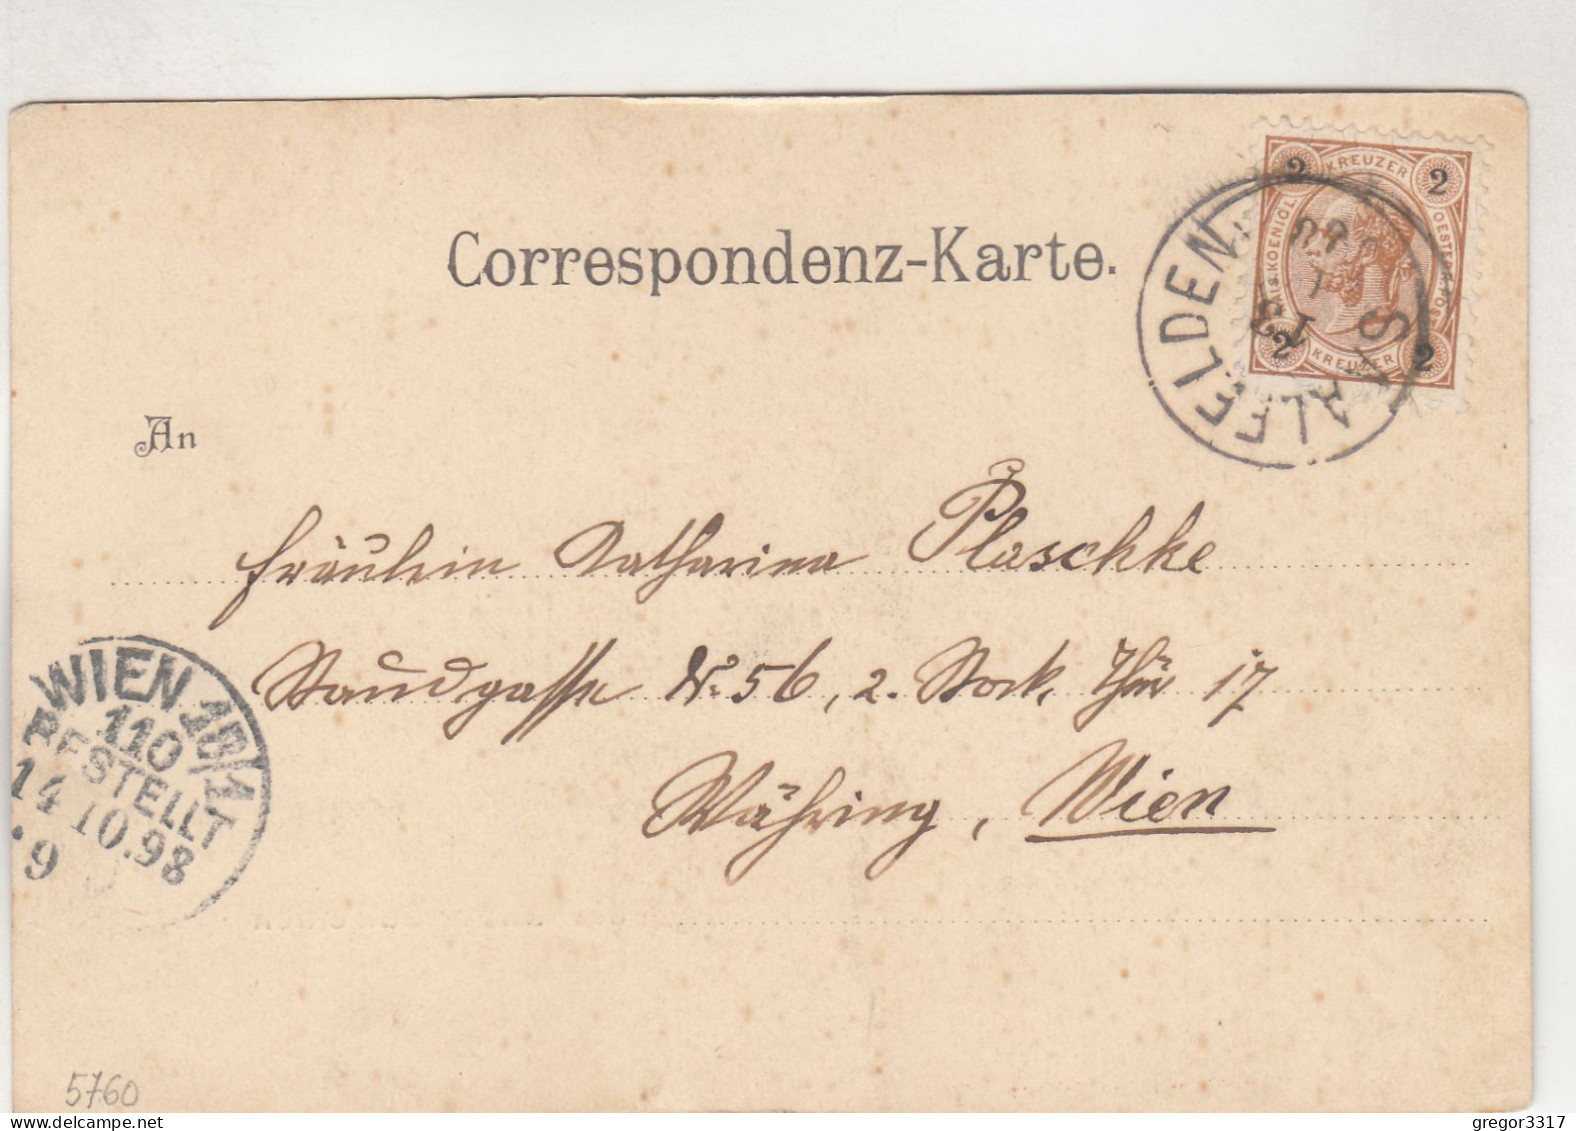 Correspondenz-Karte.
2 KREUZER 2
KAIS. KOENIGL.
OESTERR. POST
2 KREUZER 2
SAALFELDEN
13
An
Fräulein Katharina Plaschke
Staudgasse No. 56, 2. Stock, Thür 17
Währing, Wien
WIEN 18/1
110
BESTELLT
14 10.98
9
5760
gregor3317